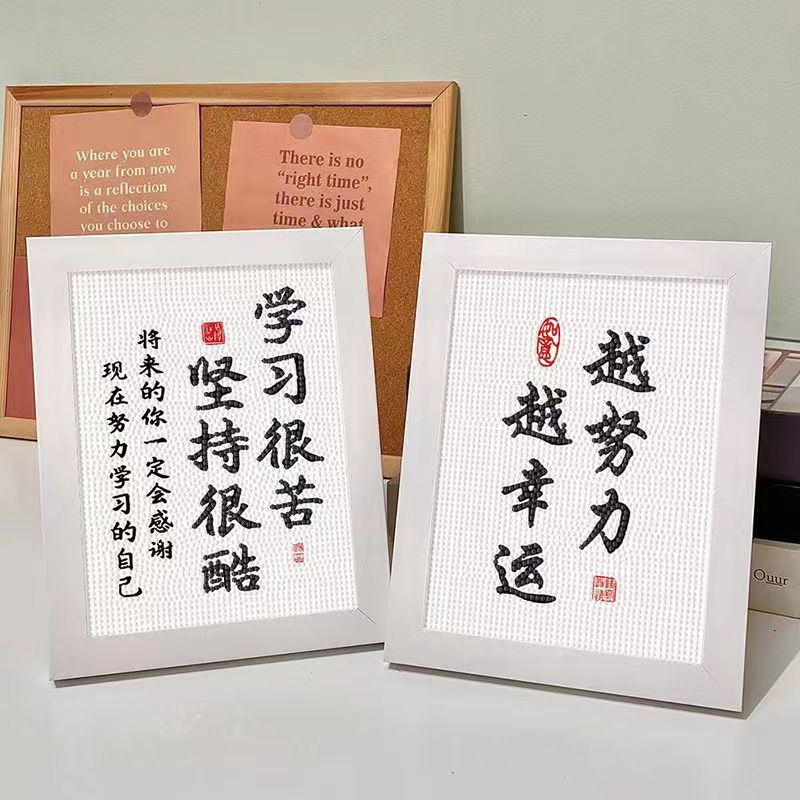 Where you are
a year from now
is a reflection
of the choices
you choose to
There is no
“right time”,
there is just
time & what
学习很苦
坚持很酷
将来的你一定会感谢
现在努力学习的自己
越努力
越幸运
如意
Ouur